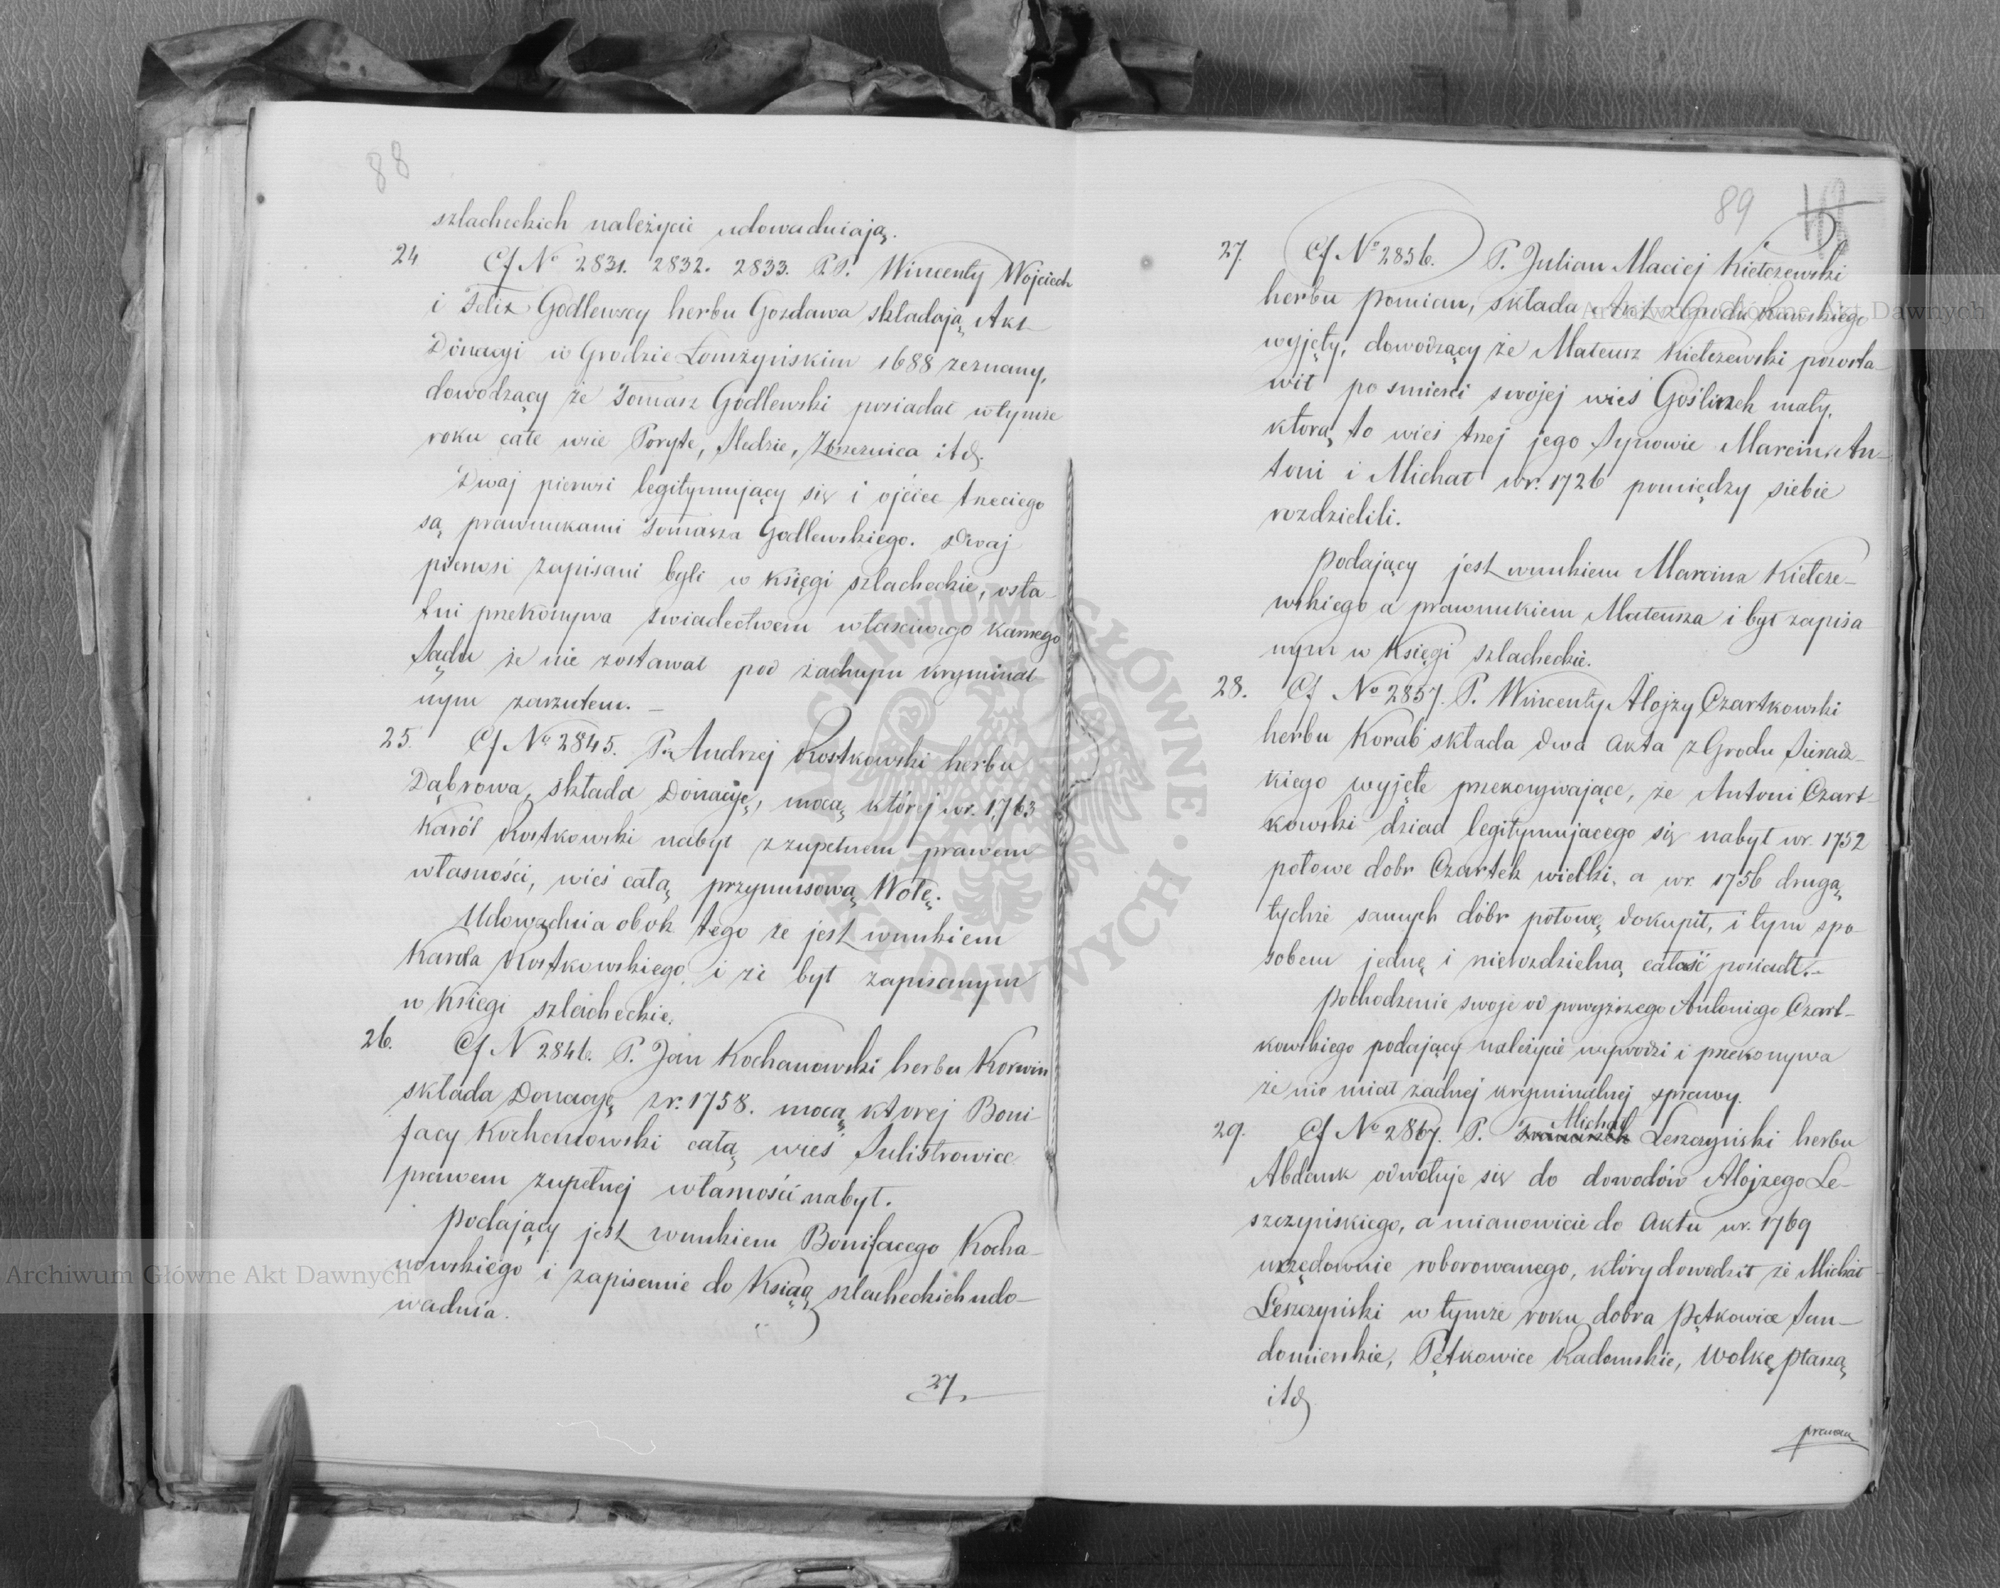 88
szlacheckich należycie udowadniają.
24 Cf No 2831. 2832. 2833. P.P. Wincenty Wojciech
i Felix Godlewscy herbu Gozdawa składają Akt
Donacyi w Grodzie Łomżyńskim 1688 zeznany,
dowodzący że Tomasz Godlewski posiadał w tymże
roku całe wsie Poryte, Śledzie, itd.
Dwaj pierwsi legitymujący się i ojciec trzeciego
są prawnukami Tomasza Godlewskiego. Dwaj
pierwsi zapisani byli w Księgi szlacheckie, osta-
tni przekonywa świadectwem właściwego karnego
Sądu że nie zostawał pod żadnym kryminal-
nym zarzutem. –
25. Cf No 2845. P. Andrzej Rostkowski herbu
Dąbrowa, składa Donacyę, mocą której w r. 1763
Karól Rostkowski nabył z zupełnem prawem
własności, wieś całą przymusową Wolę.
Udowadnia obok tego że jest wnukiem
Karola Rostkowskiego, i że był zapisanym
w Księgi szlacheckie.
26. Cf N 2846. P. Jan Kochanowski herbu Korwin
składa Donacyę z r. 1758. mocą ktorej Boni
facy Kochanowski całą wieś Sulistrowice
prawem zupełnej własności nabył.
Podający jest wnukiem Bonifacego Kocha-
nowskiego i zapisanie do Ksiąg szlacheckich udo-
wadnia.
27
89
27. Cf No 2856. P. Julian Maciej Kiełczewski
herbu Pomian, składa Akt z Grodu Rawskiego
wyjęty, dowodzący że Mateusz Kiełczewski pozosta
wił po smierci swojej wieś Goślinek mały,
ktorą to wieś trzej jego Synowie Marcin, An-
toni i Michał w r. 1726 pomiędzy siebie
rozdzielili.
Podający jest wnukiem Marcina Kiełcze-
wskiego a prawnukiem Mateusza i był zapisa
nym w Księgi szlacheckie.
28. Cf No 2857. P. Wincenty Alojzy Czartkowski
herbu Korab składa dwa Akta z Grodu Sieradz-
kiego wyjęte przekonywające, że Antoni Czart-
kowski dziad legitymujacego się nabył w r. 1752
połowe dobr Czartek wielki, a w r. 1756 drugą
tychże samych dóbr połowę dokupił, i tym spo-
sobem jedną i nierozdzielną całość posiadł. –
Pochodzenie swoje od powyższego Antoniego Czart-
kowskiego podający należycie wywodzi i przekonywa
że nie miał żadnej kryminalnej sprawy.
29. Cf No 2867. P. Michał Leszczyński herbu
Abdank odwołuje się do dowodów Alojzego Le-
szczyńskiego, a mianowicie do Aktu w r. 1769
urzędownie roborowanego, który dowodził że Michał
Leszczyński w tymże roku dobra Pętkowice San-
domierskie, Pętkowice Radomskie, Wolkę ptaszą
itd
prawem
Archiwum Główne Akt Dawnych
Archiwum Główne Akt Dawnych
ARCHIWUM GŁÓWNE AKT DAWNYCH